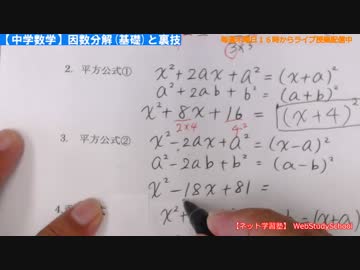 【中学数学】因数分解(基礎)と裏技
3×3
2. 平方公式①
x²+2ax+a² = (x+a)²
a²+2ab+b² = (a+b)²
x²+8x+16 = (x+4)²
2×4 4²
3. 平方公式②
x²-2ax+a² = (x-a)²
a²-2ab+b² = (a-b)²
x²-18x+81 =
4.
x²+
= (x+a)
【ネット学習塾】 WebStudySchool